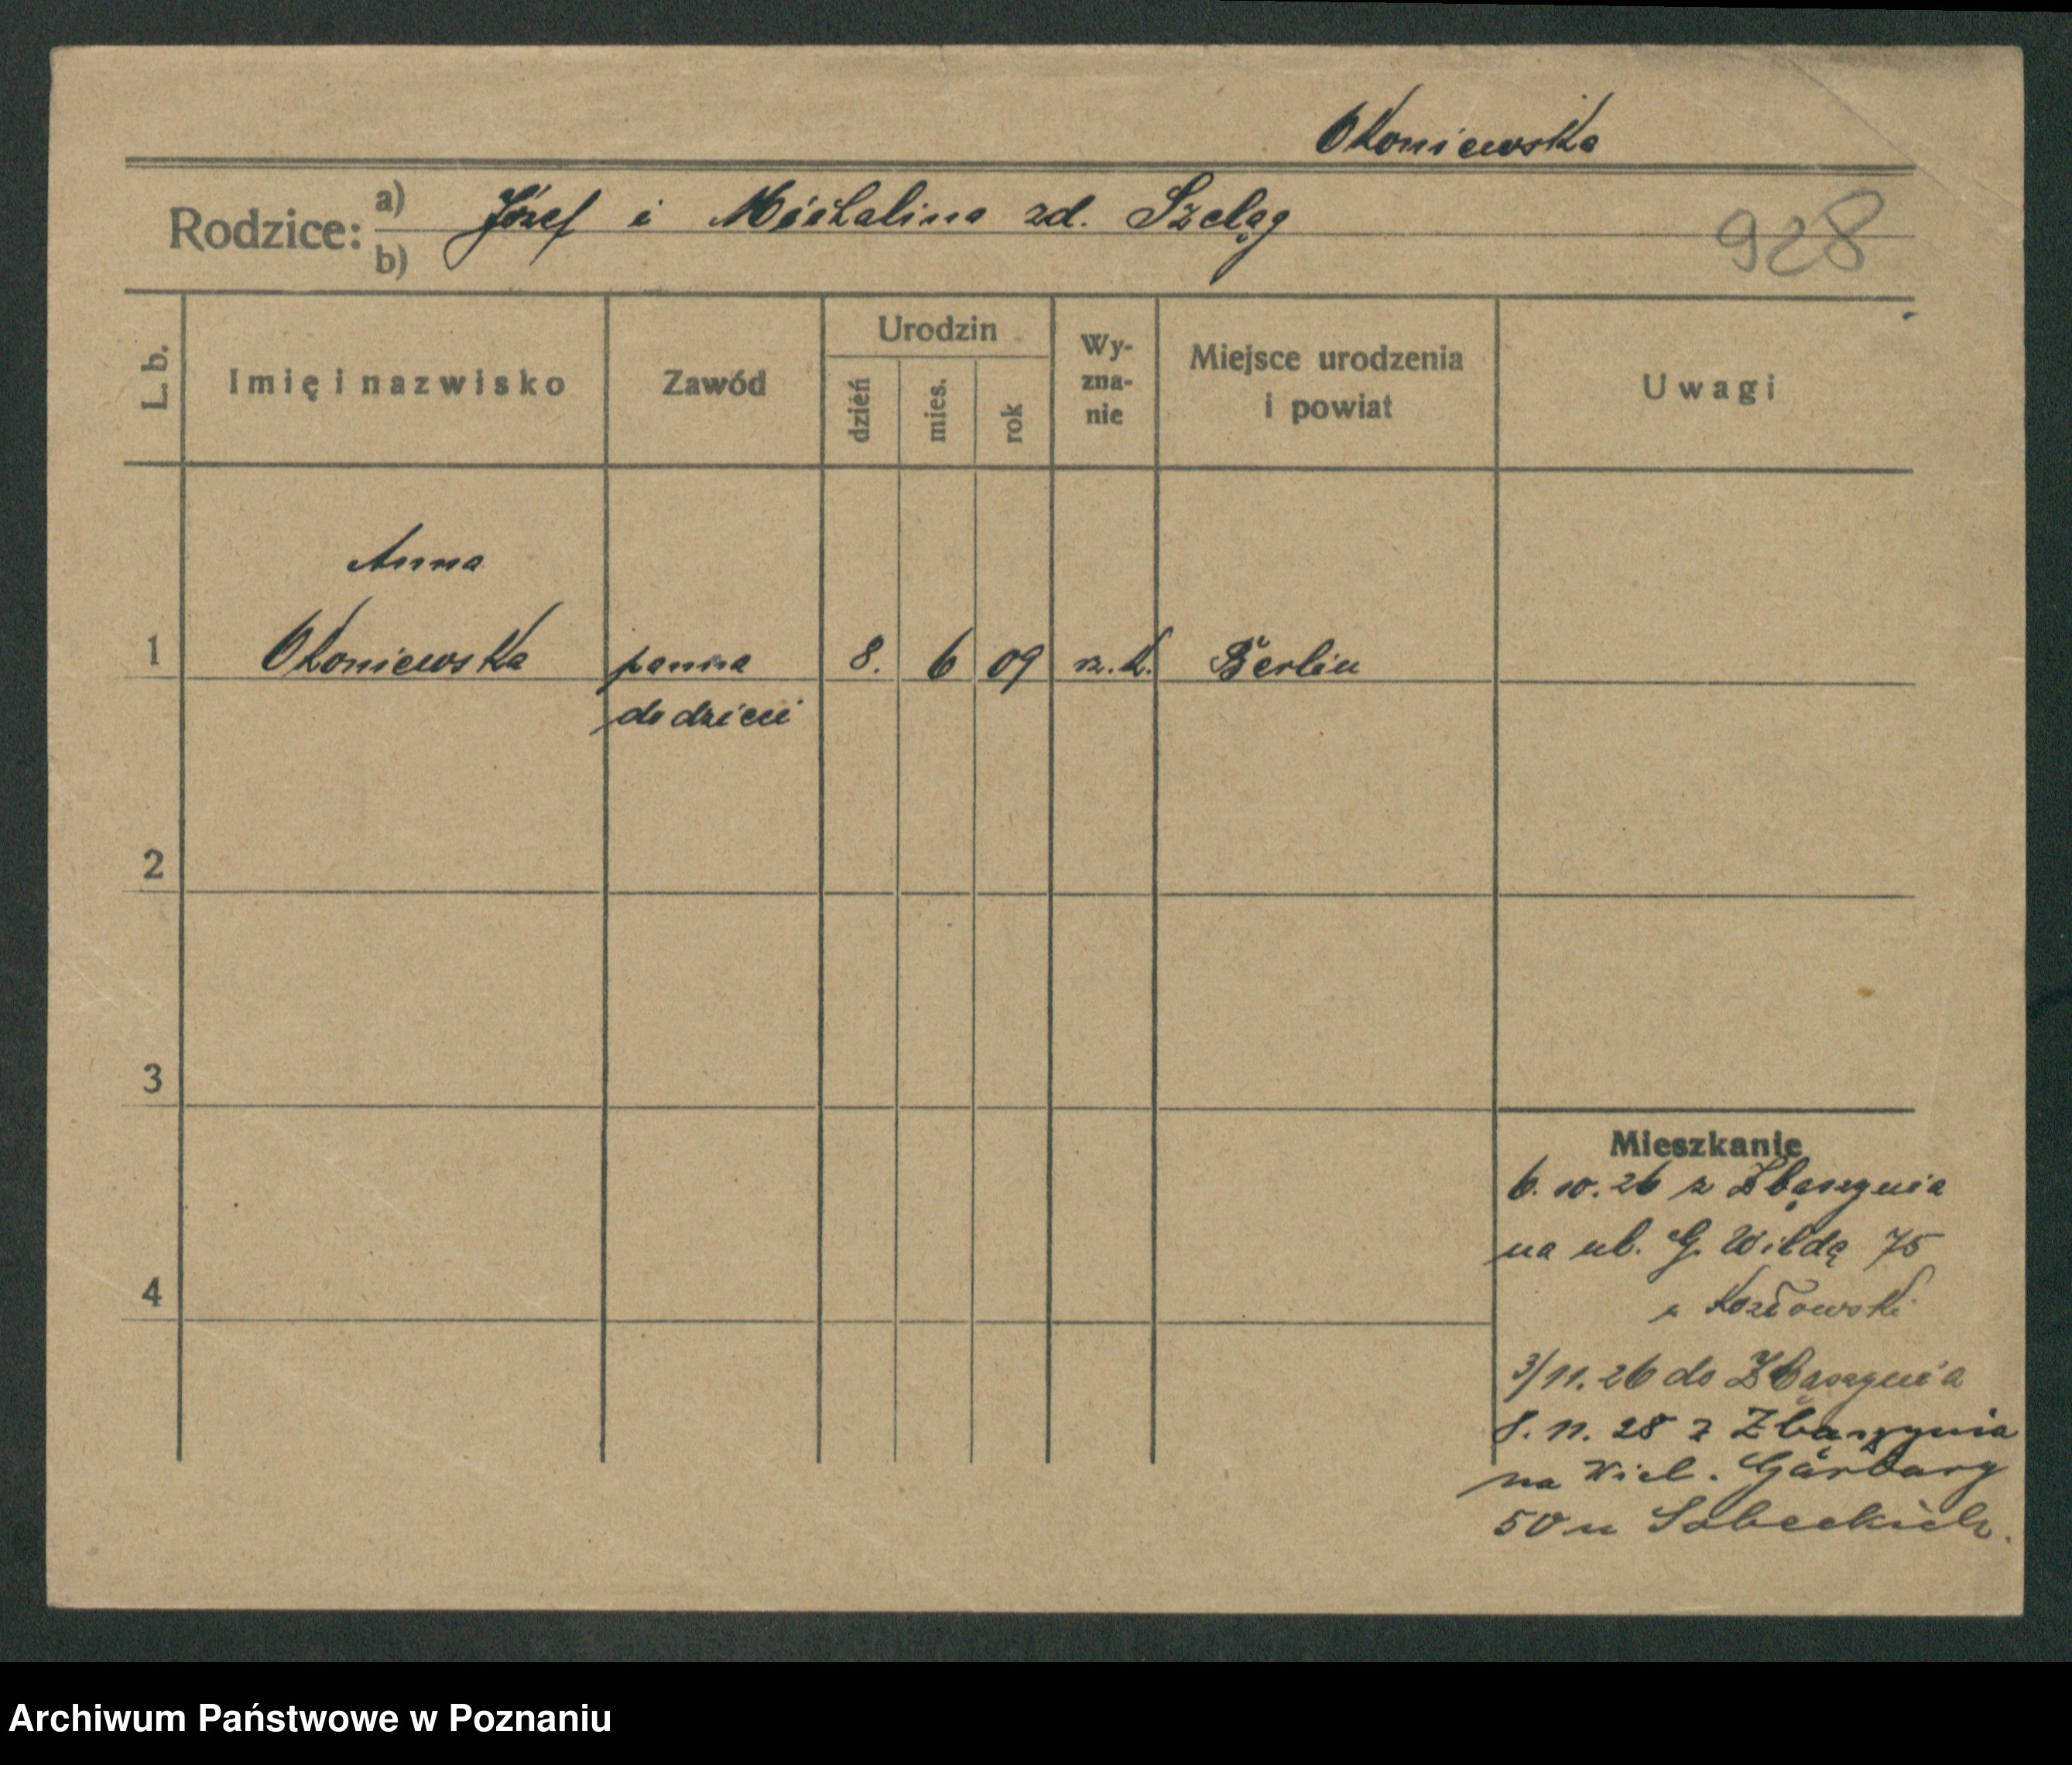 Okoniewska
Rodzice: a) Józef i Michalina zd. Szeląg
b)
928
L. b.
Imię i nazwisko
Zawód
Urodzin
dzień
mies.
rok
Wy-
zna-
nie
Miejsce urodzenia
i powiat
Uwagi
Anna
1 Okoniewska panna 8. 6 09 rz. k. Berlin
do dzieci
2
3
4
Mieszkanie
6. 10. 26 z Zbąszynia
na ul. G. Wildę 75
u Kozłowski
3/11. 26 do Zbąszynia
8. 11. 28 z Zbąszynia
na Wiel. Garbary
50 u Sobeckich.
Archiwum Państwowe w Poznaniu